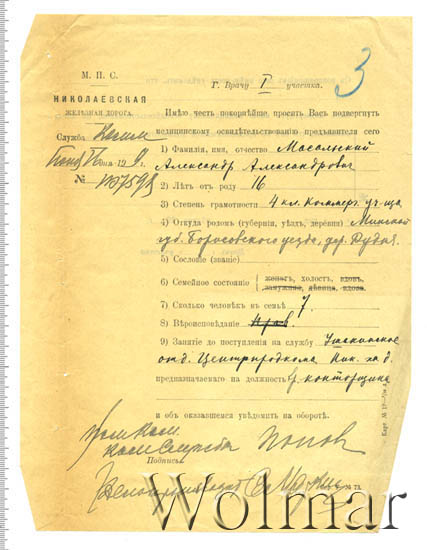 3
М. П. С.
Г. Врачу I участка.
НИКОЛАЕВСКАЯ
ЖЕЛЕЗНАЯ ДОРОГА.
Имѣю честь покорнѣйше просить Васъ подвергнуть
Служба
медицинскому освидѣтельствованію предъявителя сего
1) Фамилія, имя, отчество Масальскій
Александр Александрович
№
2) Лѣтъ отъ роду 16
3) Степень грамотности 4 кл. Коммер. уч-ща
4) Откуда родомъ (губернія, уѣздъ, деревня) Минской
губ. Борисовского уезда, дер. Рудня.
5) Сословіе (званіе)
6) Семейное состояніе { женатъ, холостъ, вдовъ,
замужняя, дѣвица, вдова.
7) Сколько человѣкъ въ семьѣ 7.
8) Вѣроисповѣданіе Прав.
9) Занятіе до поступленія на службу
отд. Центропродкома Ник. ж д.
предназначаемаго на должность конторщика
и объ оказавшемся увѣдомить на оборотѣ.
Попов
Подпись
Wolmar